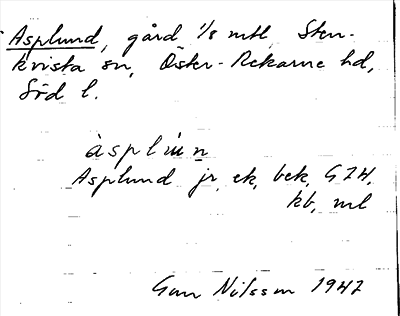 Asplund, gård 1/8 mtl, Sten-
kvista sn, Öster-Rekarne hd,
Söd l.
àsplùn
Asplund jr, ek, bek, GZH,
kb, ml
Gun Nilsson 1947